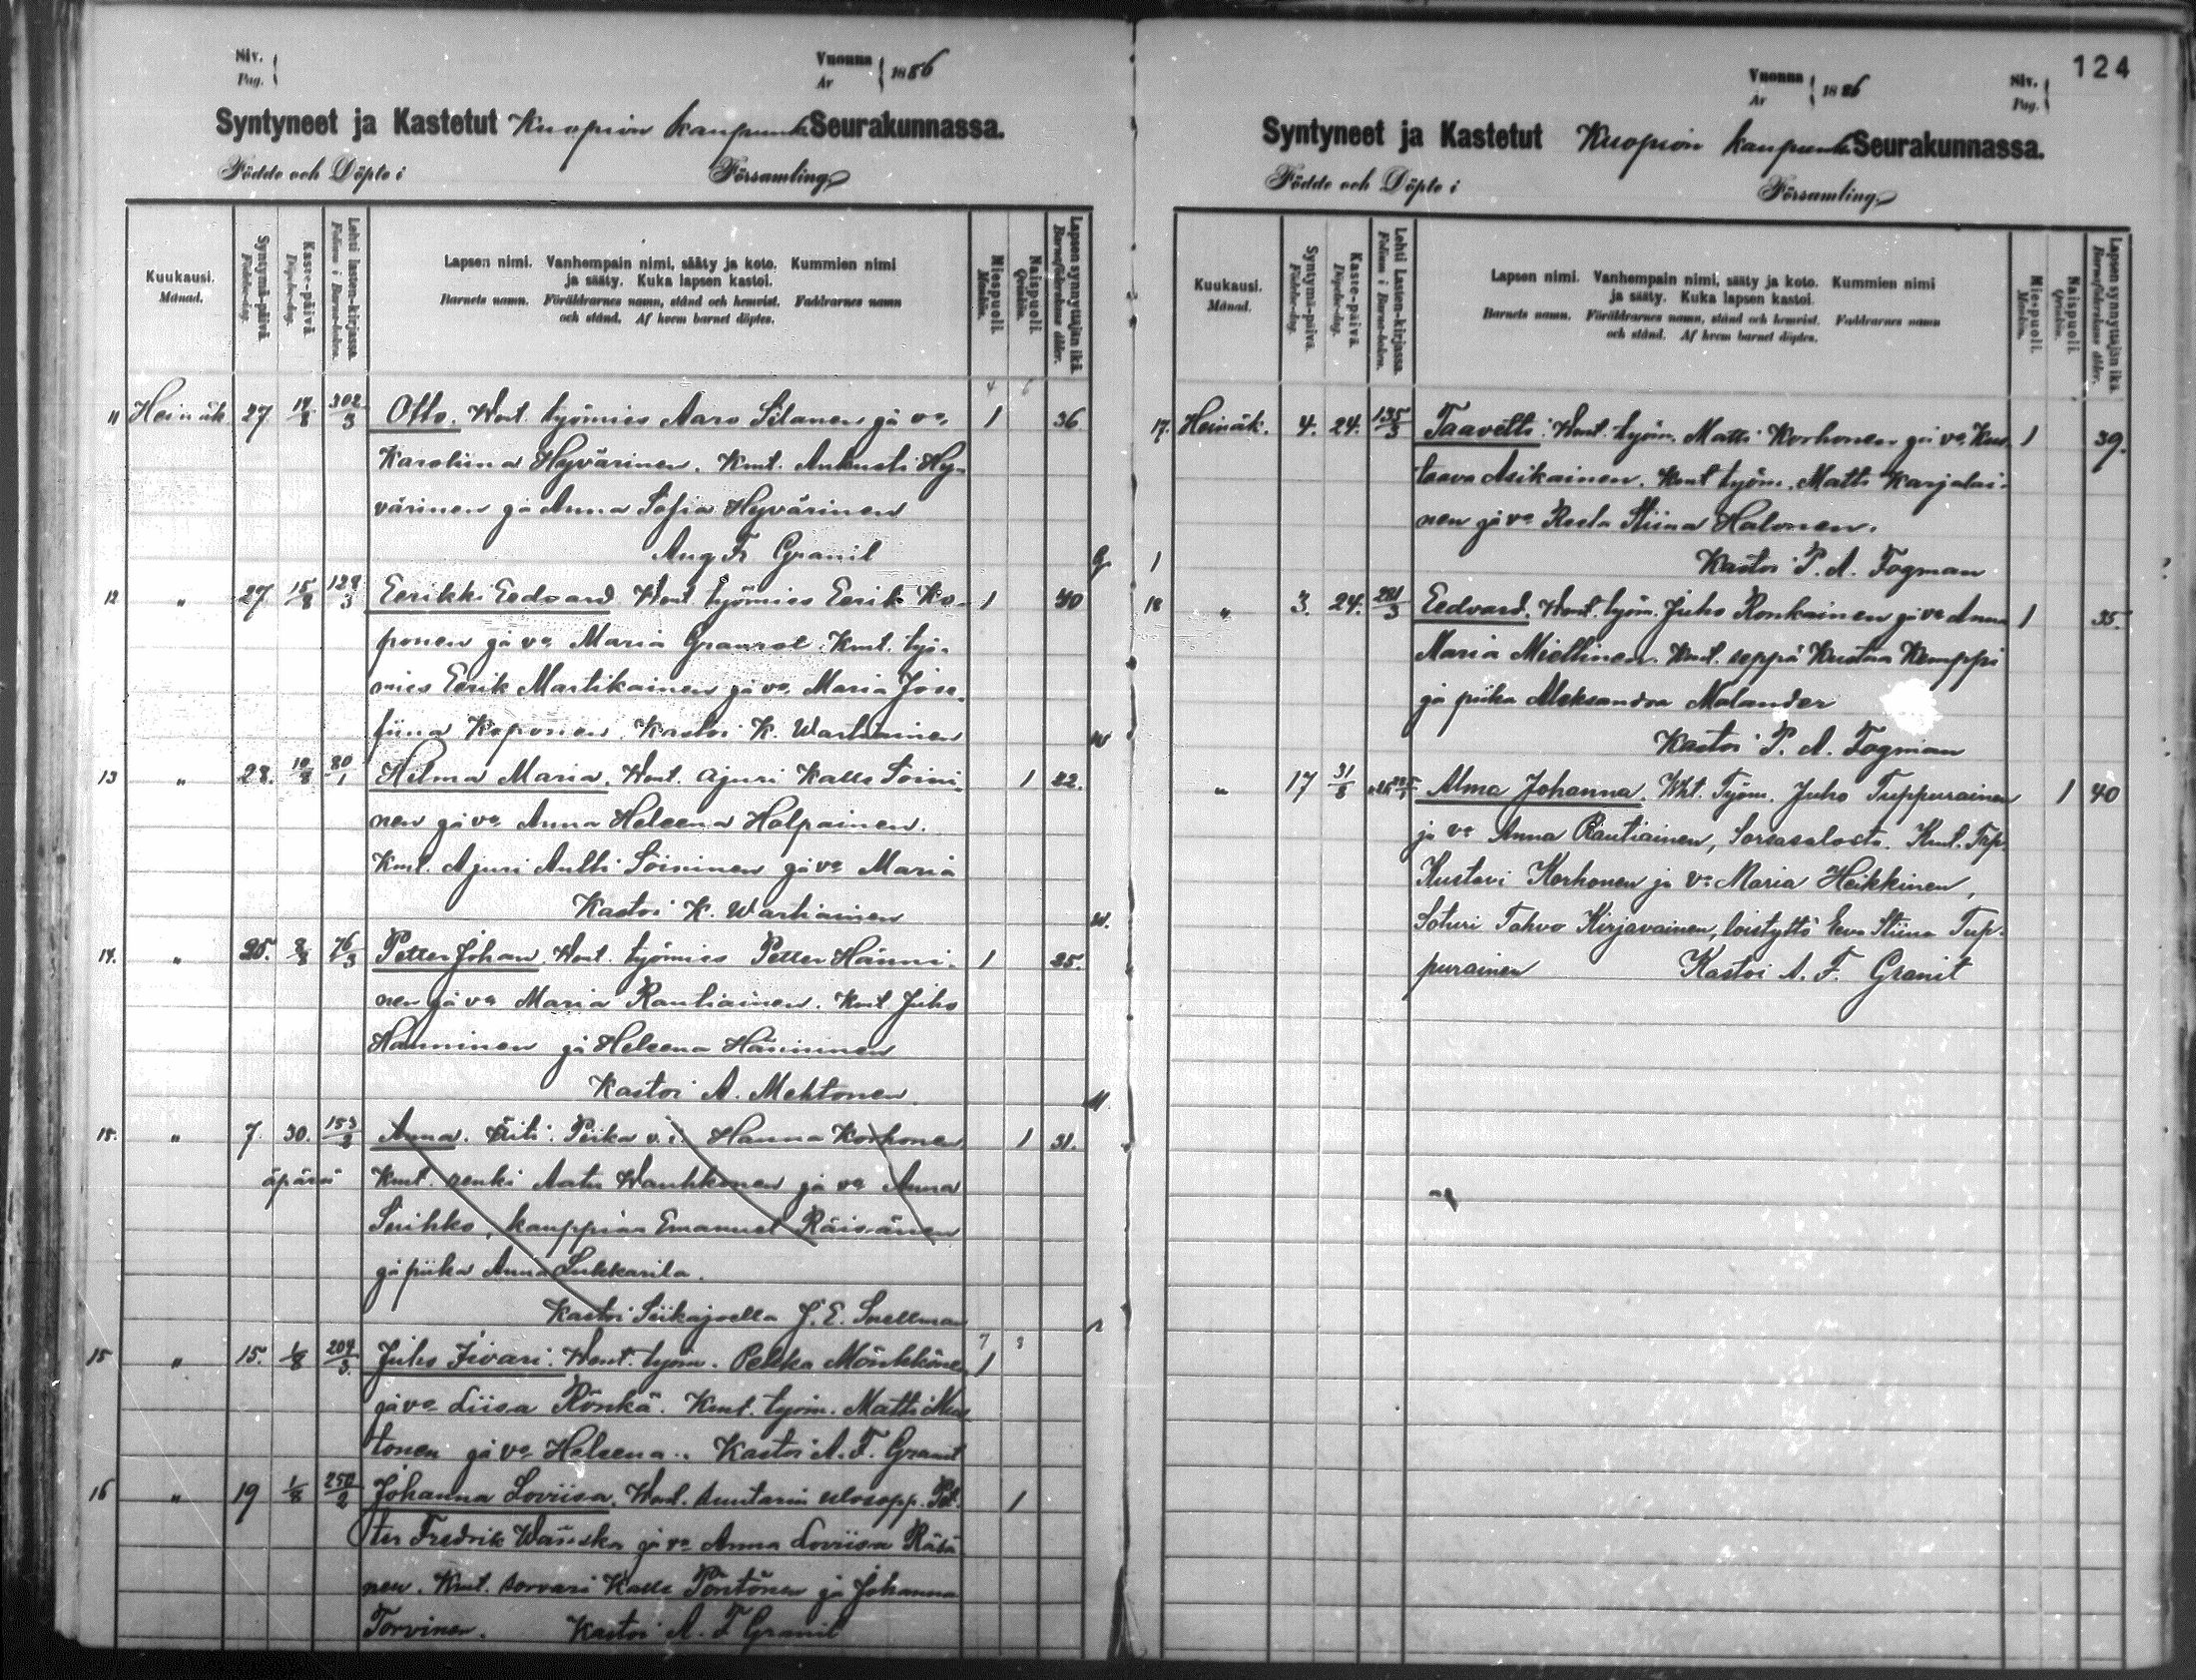 Siv.
Pag.
Vuonna
År
1886
Syntyneet ja Kastetut Kuopion kaupunki Seurakunnassa.
Födde och Döpte i Församling
Kuukausi.
Månad.
Syntymä-päivä.
Födelse-dag.
Kaste-päivä.
Döpelse-dag.
Lehti lasten-kirjassa.
Folium i Barna-boken.
Lapsen nimi. Vanhempain nimi, sääty ja koto. Kummien nimi
ja sääty. Kuka lapsen kastoi.
Barnets namn. Föräldrarnes namn, stånd och hemvist. Faddrarnes namn
och stånd. Af hvem barnet döptes.
Miespuoli.
Mankön.
Naispuoli.
Qvinkön.
Lapsen synnyttäjän ikä.
Barnaföderskans ålder.
11 Heinäk 27. 14/8 302/3 Otto. Wnt. työmies Aaro Silanen ja vo 1 36
Karoliina Hyvärinen. Kmt. Aukusti Hy-
värinen ja Anna Sofia Hyvärinen
Aug Fr Granit
12 " 27. 15/8 128/3 Eerikki Eedvard. Wnt. työmies Eerik Ko- 1 40
ponen ja vo Maria Kmt. työ-
mies Eerik Martikainen ja vo Maria Jose-
fiina Koponen. Kastoi K. Wartiainen
13 " 28. 10/8 80/1 Hilma Maria. Wnt. ajuri Kalle Soini- 1 22.
nen ja vo Anna Heleena Holpainen.
Kmt. Ajuri Antti Soininen ja vo Maria
Kastoi K. Wartiainen
14. " 25. 8/8 76/3 Petter Johan. Wnt. työmies Petter Hänni- 1 25.
nen ja vo Maria Rautiainen. Kmt Juho
Hänninen ja Heleena Hänninen
Kastoi A. Mehtonen.
15. " 7. 30. 153/2 Anna. Äiti. Piika Hanna Korhonen 1 31.
äpärä Kmt. renki Aatu Wauhkonen ja vo Anna
Suihko, kauppias Emanuel Räisänen
ja piika Anna Sukkarila.
Kastoi Siikajoella J. E. Snellman
15 " 15. 1/8 209/3 Juho Iivari. Wnt. työm. Pekka Mönkkönen 1
ja vo Liisa Rönkä. Kmt. työm. Matti Mus-
tonen ja vo Heleena. Kastoi A. F. Granit
16 " 19 1/8 250/2 Johanna Loviisa. Wnt. suutarin Pet-
ter Fredrik ja vo Anna Loviisa Räsä- 1
nen. Kmt. sorvari Kalle Pöntönen ja Johanna
Torvinen. Kastoi A. F Granit
124
Vuonna
År
1886
Siv.
Pag.
Syntyneet ja Kastetut Kuopion kaupunki Seurakunnassa.
Födde och Döpte i Församling
Kuukausi.
Månad.
Syntymä-päivä.
Födelse-dag.
Kaste-päivä.
Döpelse-dag.
Lehti Lasten-kirjassa.
Folium i Barna-boken.
Lapsen nimi. Vanhempain nimi, sääty ja koto. Kummien nimi
ja sääty. Kuka lapsen kastoi.
Barnets namn. Föräldrarnes namn, stånd och hemvist. Faddrarnes namn
och stånd. Af hvem barnet döptes.
Miespuoli.
Mankön.
Naispuoli.
Qvinkön.
Lapsen synnyttäjän ikä.
Barnaföderskans ålder.
17. Heinäk. 4. 24. 135/3 Taavetti. Wnt. työm. Matti Korhonen ja vo Kus- 1 39.
taava Asikainen. Kmt työm. Matti Karjalai-
nen ja vo Reeta Stiina Halonen.
Kastoi P. A. Fagman
18 " 3. 24. 281/3 Eedvard. Wnt. työm. Juho Ronkainen ja vo Anna 1 35.
Maria Miettinen. Kmt. seppä Kustaa Kemppi
ja piika Aleksandra Malander
Kastoi P. A. Fagman
" 17 31/8 Alma Johanna. Wht. Työm. Juho Tuppurainen 1 40
ja vo Anna Rautiainen, Sorsasalosta. Kmt. Tap.
Kustavi Korhonen ja vo Maria Heikkinen,
Soturi Tahvo Kirjavainen, loistyttö Eeva Stiina Tup-
purainen Kastoi A. F. Granit